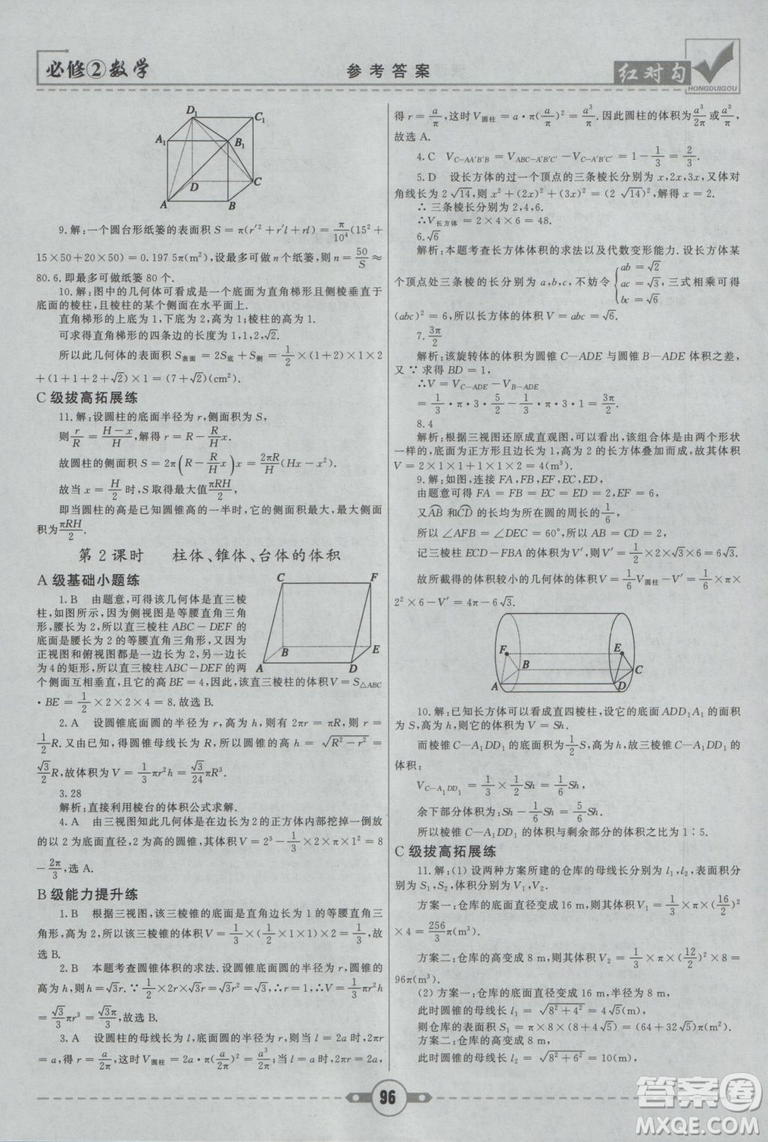 必修②数学
参考答案
红对勾
HONGDUIGOU
D₁ C₁
A₁ B₁
D C
A B
9.解:一个圆台形纸篓的表面积 S=π(r′²+r′l+rl)=π/10⁴(15²+
15×50+20×50)=0.197 5π(m²),设最多可做n个纸篓,则n=50/S≈
80.6,即最多可做纸篓 80 个.
10.解:图中的几何体可看成是一个底面为直角梯形且侧棱垂直于
底面的棱柱,且棱柱的某个侧面在水平面上.
直角梯形的上底为1,下底为2,高为1;棱柱的高为1.
可求得直角梯形的四条边的长度为1,1,2,√2.
所以此几何体的表面积 S表面=2S底+S侧=1/2×(1+2)×1×2
+(1+1+2+√2)×1=(7+√2)(cm²)
C 级拔高拓展练
11.解:设圆柱的底面半径为r,侧面积为S,
则r/R=(H−x)/H,解得r=R−R/H x.
故圆柱的侧面积S=2π(R−R/H x)x=2πR/H(Hx−x²).
故当x=H/2时,S取得最大值πRH/2.
即当圆柱的高是已知圆锥高的一半时,它的侧面积最大,最大侧面积
为πRH/2.
第2课时 柱体、锥体、台体的体积
A 级基础小题练
1.B 由题意,可得该几何体是直三棱
柱,如图所示,因为侧视图是等腰直角三角
形,所以该直三棱柱ABC-DEF的底面
是腰长为2的等腰直角三角形,又因为
正视图和俯视图都是一边长为2,另一边长
为4的矩形,所以直三棱柱ABC-DEF的三
个侧面互相垂直,且它的高BE=4,因此,该直三棱柱的体积V=S△ABC
·BE=1/2×2×2×4=8.故选B.
C F
B E
A D
2.A 设圆锥底面圆的半径为r,高为h,则有2πr=πR,则r=
1/2R.又由已知,得圆锥母线长为R,所以圆锥的高h=√(R²−r²)=
√3/2R,故体积V=1/3πr²h=√3/24πR³.
3.28
解析:直接利用棱台的体积公式求解.
4.A 由三视图知此几何体为边长为2的正方体内部挖掉一个倒放的
以2为底面直径,2为高的圆锥,其体积V=2³−1/3×π×2×1²=8
−2π/3,选A.
B 级能力提升练
1.B 根据三视图,该三棱锥的底面是直角边长为1的等腰直角三
角形,三棱锥的高是2,故该三棱锥的体积V=1/3×(1/2×1×1)×2=1/3,
故选B.
2.B 本题考查圆锥体积的求法.设圆锥底面的半径为r,则高为
√3r,则1/2×2r×√3r=√3,所以r=1.所以V=1/3πr²×√3r=√3π/3r³=√3π/3.
故选B.
3.A 设圆柱的母线长为l,底面圆的半径为r,则当l=2a时,2πr=
a,得r=a/2π,这时V圆柱=2a·π(a/2π)²=a³/2π;当l=a时,2πr=2a,
得r=a/π,这时V圆柱=a·π(a/π)²=a³/π.因此圆柱的体积为a³/2π或a³/π,
故选A.
4.C V_{C-AA′B′B}=V_{ABC-A′B′C′}−V_{C-A′B′C′}=1−1/3=2/3.
5.D 设长方体的过一个顶点的三条棱长分别为x,2x,3x,又体对
角线长为2√14,则x²+(2x)²+(3x)²=(2√14)²,解得x=2.
∴三条棱长分别为2,4,6.
∴V长方体=2×4×6=48.
6.√6
解析:本题考查长方体体积的求法以及代数变形能力.设长方体某
个顶点处三条棱的长分别为a,b,c,不妨设{ab=√2 ac=√3,则有
bc=√6
(abc)²=6,所以体积为√6.
7.3π/2
解析:该旋转体的体积为圆锥C—ADE与圆锥B—ADE体积之差,
又∵求得BD=1.
∴V=V_{C-ADE}−V_{B-ADE}
=1/3·π·3·5/2−1/3·π·3·1=3π/2.
8.4
解析:根据三视图还原成直观图,可以看出,该组合体是由两个形状
一样的,底面为正方形且边长为1,高为2的长方体叠加而成,其体积
V=2×1×1+1×1×2=4(m³).
9.解:如图,连接FA,FB,EF,EC,ED.
由题意可得FA=FB=EF=EC=ED=2.
又AB和CD的长均为所在圆的周长的1/6,
所以∠AFB=∠CED=60°,所以AB=2,
记三棱柱ECD-FBA的体积为V′,则V′=1/2×2×√3×2=2√3.
故所截得的较小的几何体的体积V=1/6V圆柱−V′=1/6×π×
2²×6−V′=4π−2√3.
F E
B C
A D
10.解:已知长方体可以看成直四棱柱,设它的底面ADD₁A₁的面积
为S,高为h,则它的体积为V=Sh.
而棱锥C—A₁DD₁的底面面积为1/2S,高是h,故三棱锥C—A₁DD₁的
体积:
V_{C—A₁DD₁}=1/3×1/2Sh=1/6Sh,
余下部分体积为Sh−1/6Sh=5/6Sh.
所以棱锥C—A₁DD₁的体积与剩余部分的体积之比为1∶5.
C 级拔高拓展练
11.解:(1)设两种方案所建的仓库的母线长分别为l₁,l₂,表面积分
别为S₁,S₂,体积分别为V₁,V₂.
方案一:仓库的底面直径变成16 m,则仓库的体积V₁=1/3×π×(16/2)²
×4=256/3π(m³).
方案二:仓库的高变成8 m,则仓库的体积V₂=1/3×π×(12/2)²×8=
96π(m³).
(2)方案一:仓库的底面直径变成16 m,半径为8 m,
此时圆锥的母线长l₁=√(8²+4²)=4√5(m),
则仓库的表面积S₁=π×8×4√5+π×8²=(64+32√5)π(m²).
方案二:仓库的高变成8 m,
此时圆锥的母线长l₂=√(8²+6²)=10(m),
96
答案圈
MXQE.COM